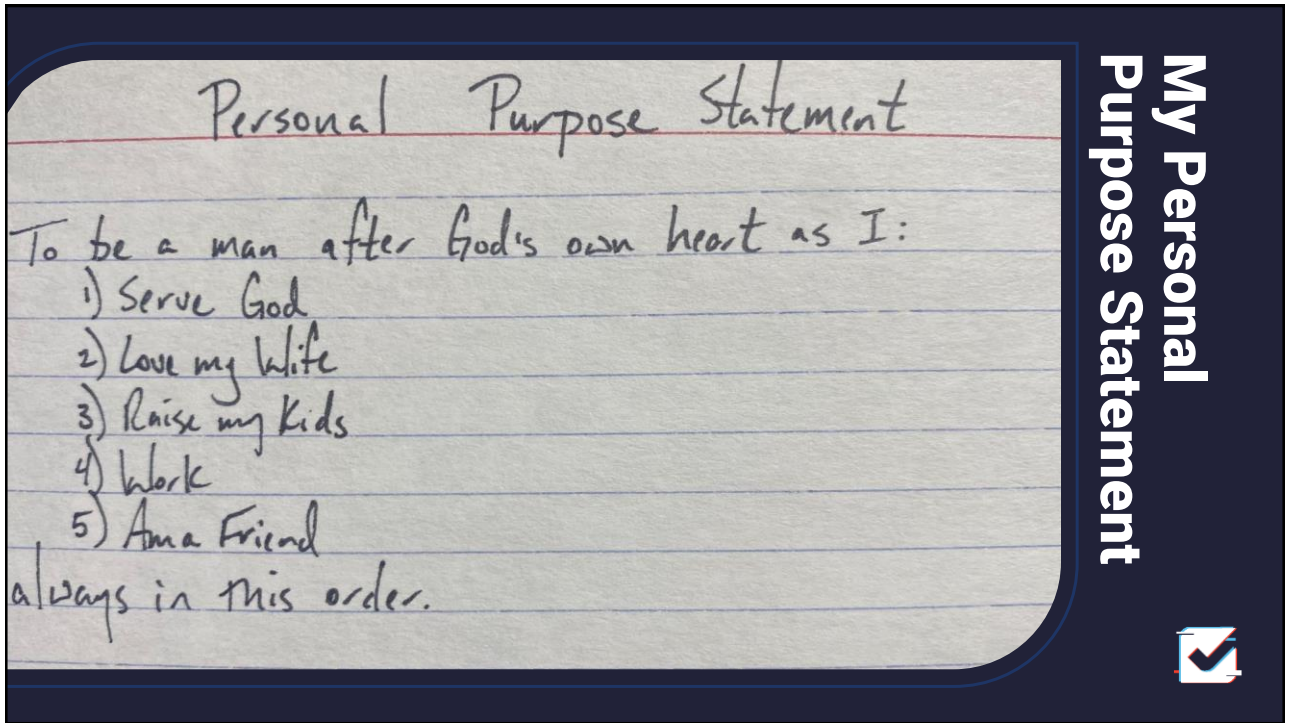 Personal Purpose Statement
To be a man after God's own heart as I:
1) Serve God
2) Love my Wife
3) Raise my Kids
4) Work
5) Am a Friend
always in this order.
My Personal
Purpose Statement